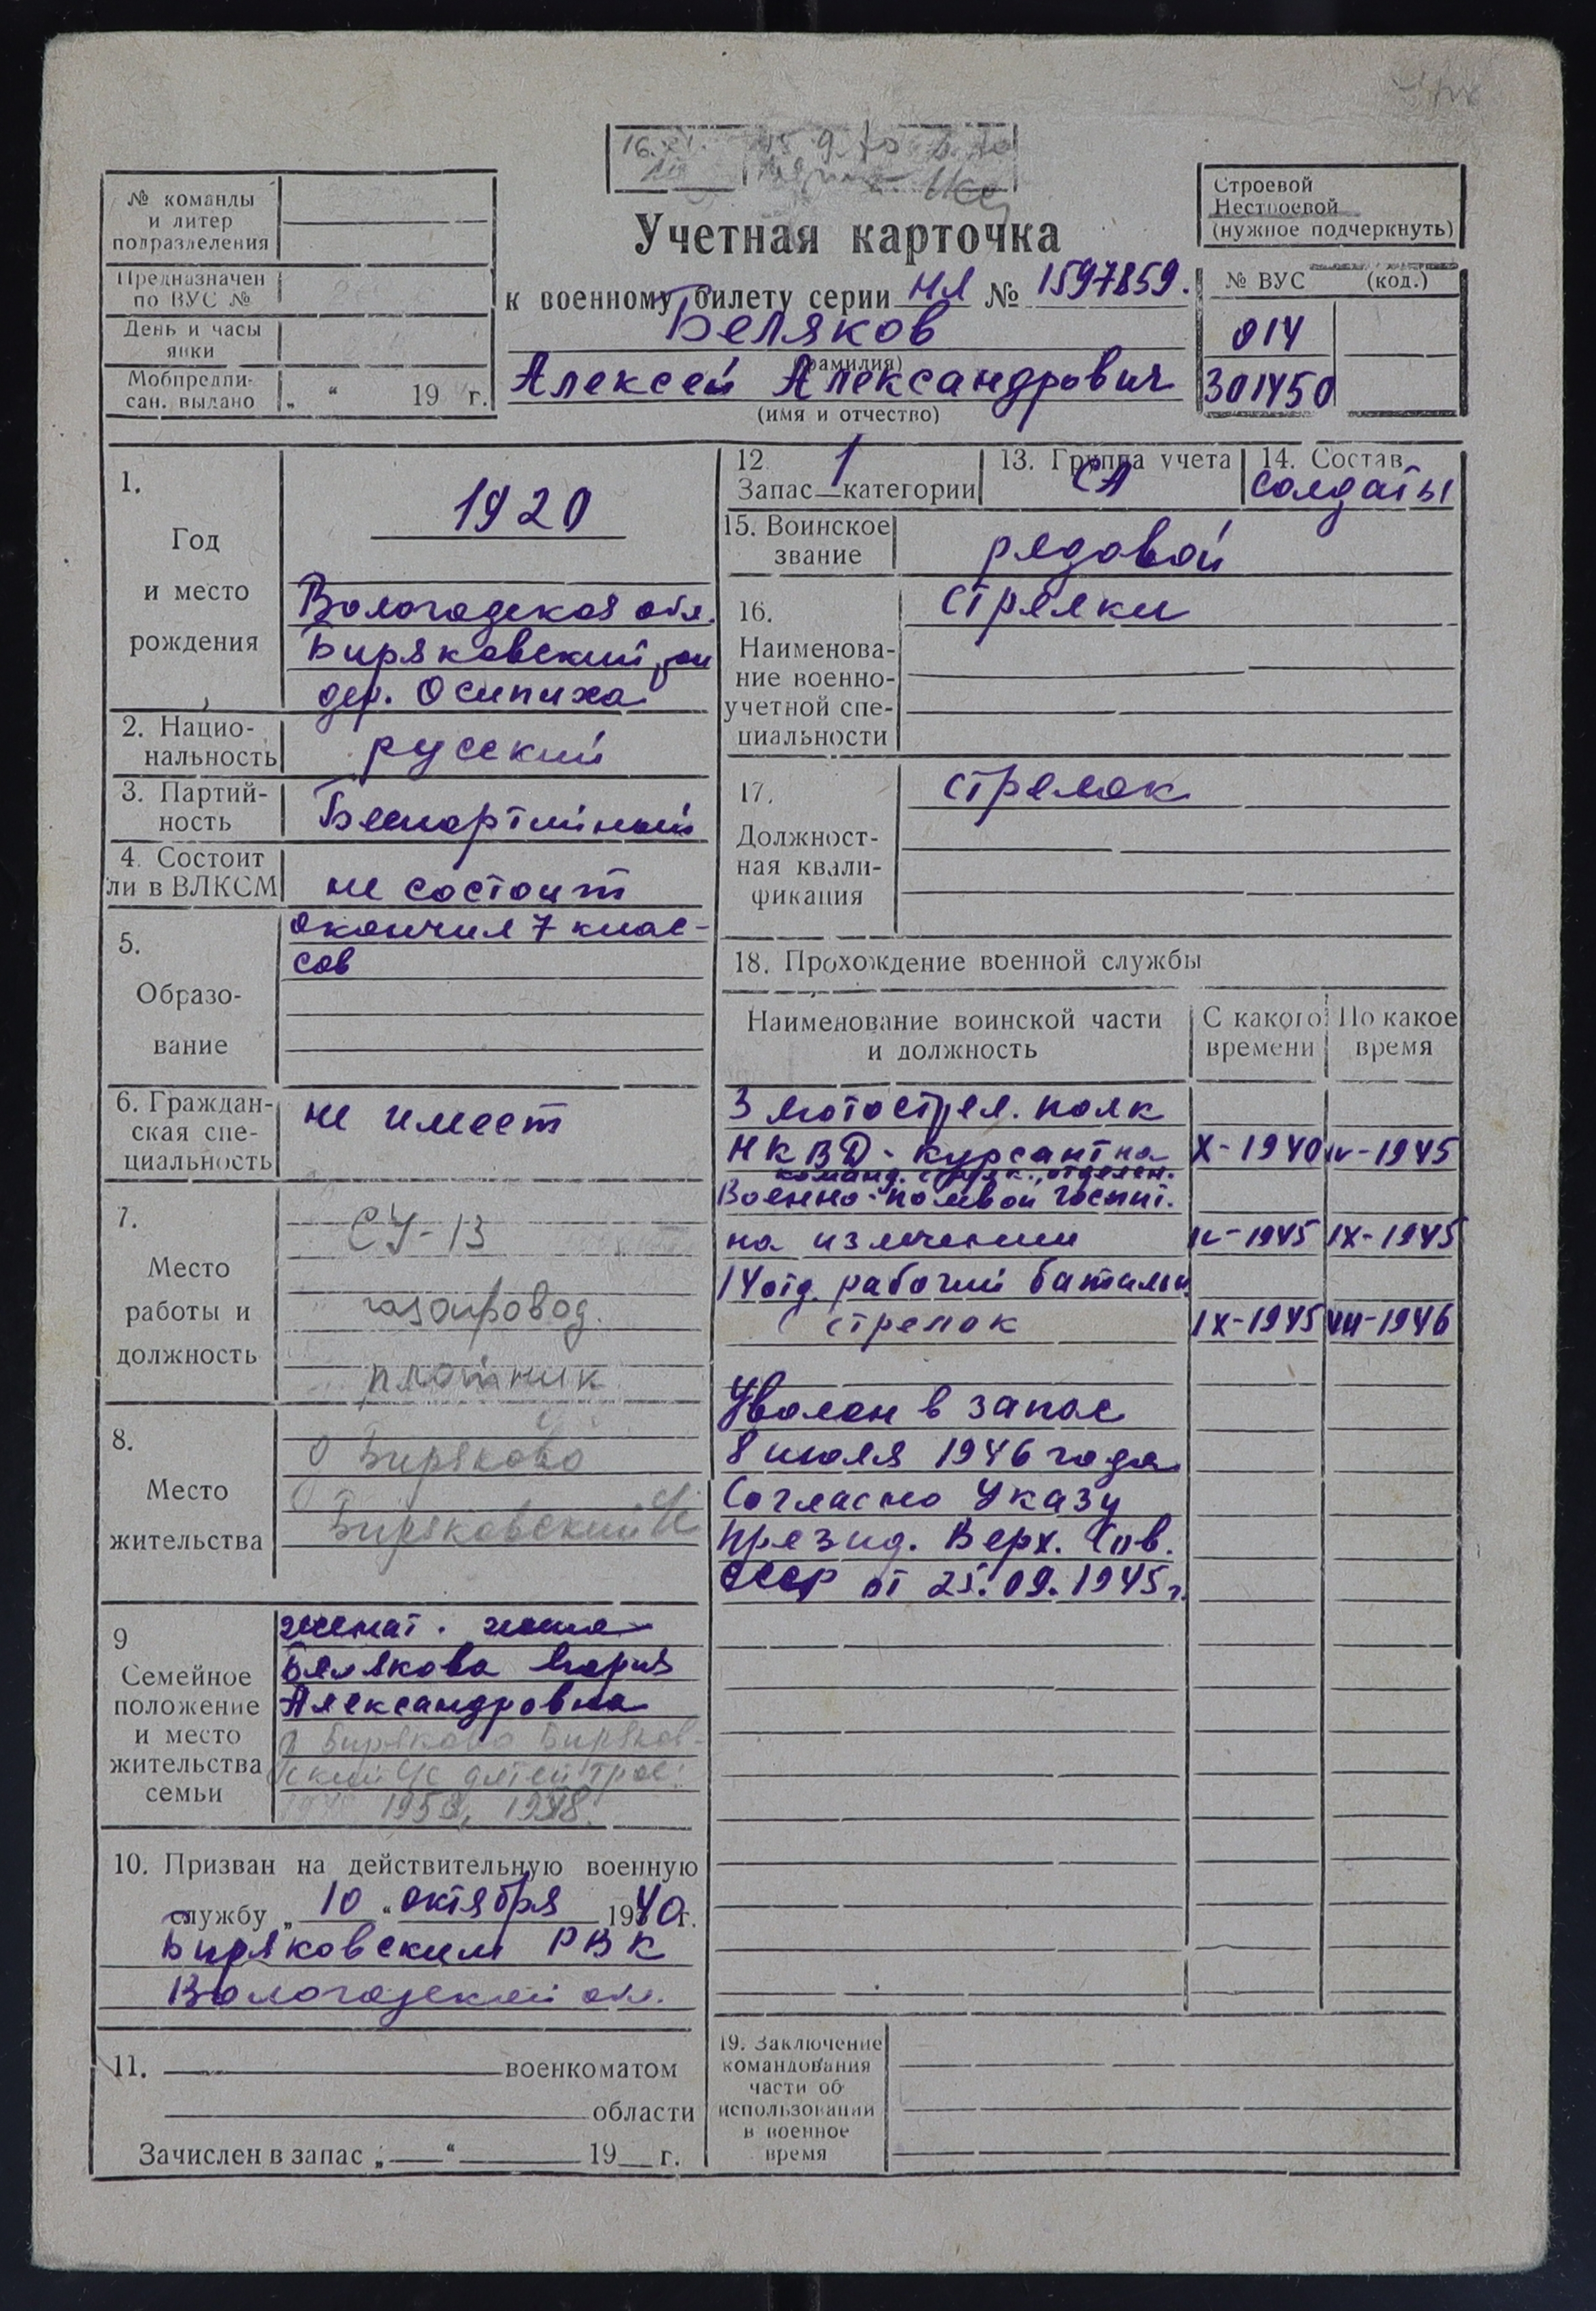 № команды
и литер
подразделения
Предназначен
по ВУС №
День и часы
явки
Мобпредпи-
сан. выдано „ “ 19 г.
Учетная карточка
к военному билету серии НЛ № 1597859.
Беляков
(фамилия)
Алексей Александрович
(имя и отчество)
Строевой
Нестроевой
(нужное подчеркнуть)
№ ВУС (код.)
014
301450
1.
Год
и место
рождения
1920
Вологодская обл.
Биряковский
дер. Осипиха
2. Нацио-
нальность
русский
3. Партий-
ность
Беспартийный
4. Состоит
ли в ВЛКСМ
не состоит
5.
Образо-
вание
окончил 7 клас-
сов
6. Граждан-
ская спе-
циальность
не имеет
7.
Место
работы и
должность
СУ-13
газопровод.
плотник
8.
Место
жительства
Биряково
Биряковский
9
Семейное
положение
и место
жительства
семьи
женат. жена
Белякова Мария
Александровна
Биряково Биряков-
ский с детей трое:
10. Призван на действительную военную
службу „10“ октября 1940 г.
Биряковским РВК
Вологодской обл.
11. военкоматом
области
Зачислен в запас „ “ 19 г.
12 1
Запас категории
13. Группа учета
СА
14. Состав
солдаты
15. Воинское
звание
рядовой
16.
Наименова-
ние военно-
учетной спе-
циальности
стрелки
17.
Должност-
ная квали-
фикация
стрелок
18. Прохождение военной службы
Наименование воинской части
и должность
С какого
времени
По какое
время
3 мотострел. полк
НКВД - курсант на X-1940 IV-1945
команд. стрелк. отделен.
Военно-полевой госпит.
на излечении IV-1945 IX-1945
14 отд. рабочий батальон
стрелок IX-1945 VII-1946
Уволен в запас
8 июля 1946 года
Согласно Указу
Презид. Верх. Сов.
СССР от 25.09.1945 г.
19. Заключение
командования
части об
использовании
в военное
время